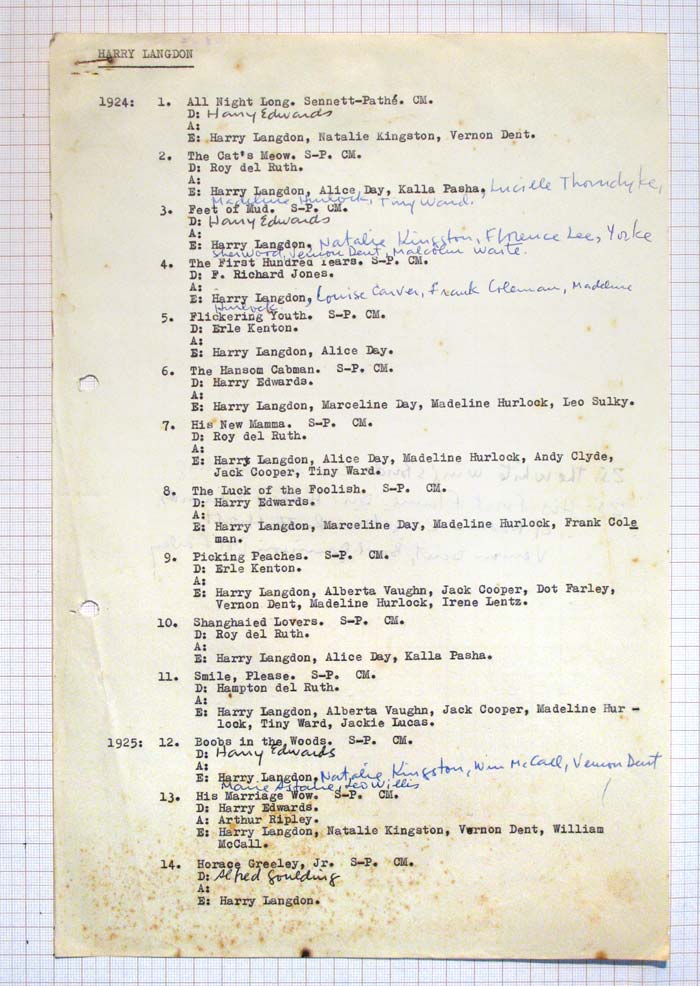 HARRY LANGDON
1924: 1. All Night Long. Sennett-Pathé. CM.
D: Harry Edwards
A:
E: Harry Langdon, Natalie Kingston, Vernon Dent.
2. The Cat's Meow. S-P. CM.
D: Roy del Ruth.
A:
E: Harry Langdon, Alice Day, Kalla Pasha, Lucille Thorndyke,
Madeline Hurlock, Tiny Ward.
3. Feet of Mud. S-P. CM.
D: Harry Edwards
A:
E: Harry Langdon, Natalie Kingston, Florence Lee, Yorke
Sherwood, Vernon Dent, Malcolm Waite.
4. The First Hundred Years. S-P. CM.
D: F. Richard Jones.
A:
E: Harry Langdon, Louise Carver, Frank Coleman, Madeline
Hurlock.
5. Flickering Youth. S-P. CM.
D: Erle Kenton.
A:
E: Harry Langdon, Alice Day.
6. The Hansom Cabman. S-P. CM.
D: Harry Edwards.
A:
E: Harry Langdon, Marceline Day, Madeline Hurlock, Leo Sulky.
7. His New Mamma. S-P. CM.
D: Roy del Ruth.
A:
E: Harry Langdon, Alice Day, Madeline Hurlock, Andy Clyde,
Jack Cooper, Tiny Ward.
8. The Luck of the Foolish. S-P. CM.
D: Harry Edwards.
A:
E: Harry Langdon, Marceline Day, Madeline Hurlock, Frank Cole
man.
9. Picking Peaches. S-P. CM.
D: Erle Kenton.
A:
E: Harry Langdon, Alberta Vaughn, Jack Cooper, Dot Farley,
Vernon Dent, Madeline Hurlock, Irene Lentz.
10. Shanghaied Lovers. S-P. CM.
D: Roy del Ruth.
A:
E: Harry Langdon, Alice Day, Kalla Pasha.
11. Smile, Please. S-P. CM.
D: Hampton del Ruth.
A:
E: Harry Langdon, Alberta Vaughn, Jack Cooper, Madeline Hur -
lock, Tiny Ward, Jackie Lucas.
1925: 12. Boobs in the Woods. S-P. CM.
D: Harry Edwards
A:
E: Harry Langdon, Natalie Kingston, Wm McCall, Vernon Dent
Marie Astaire, Leo Willis
13. His Marriage Wow. S-P. CM.
D: Harry Edwards.
A: Arthur Ripley.
E: Harry Langdon, Natalie Kingston, Vernon Dent, William
McCall.
14. Horace Greeley, Jr. S-P. CM.
D: Alfred Goulding
A:
E: Harry Langdon.